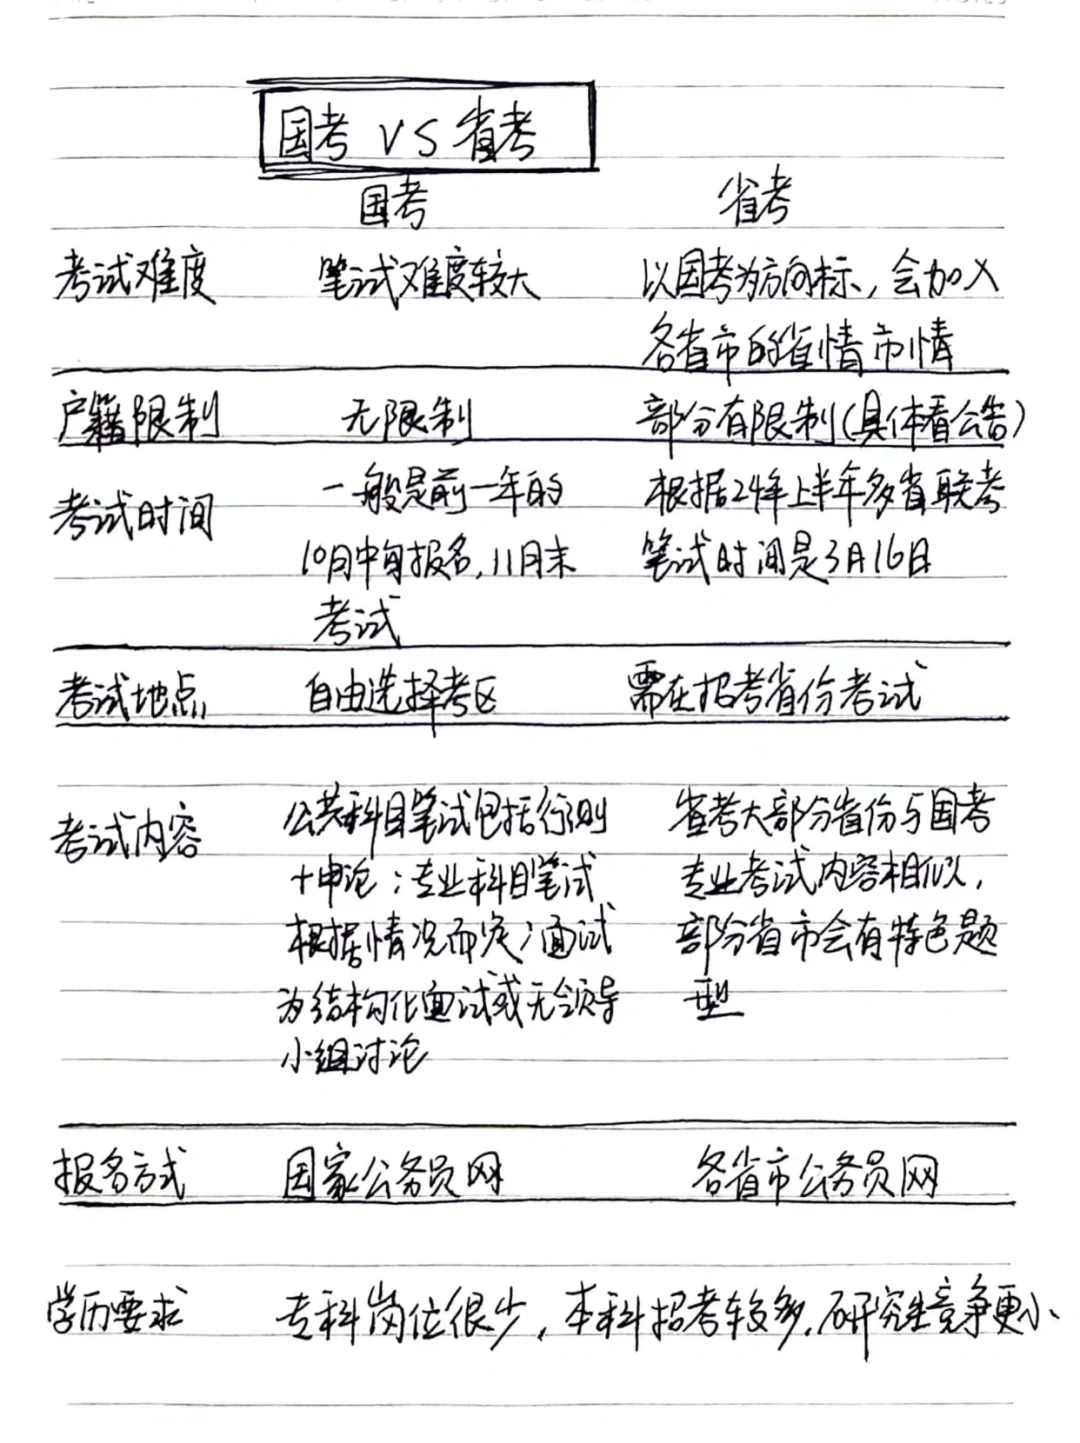 国考 VS 省考
国考 省考
考试难度 笔试难度较大 以国考为方向标，会加入
各省市的省情市情
户籍限制 无限制 部分有限制(具体看公告)
考试时间 一般是前一年的 根据24年上半年多省联考
10月中旬报名,11月末 笔试时间是3月16日
考试
考试地点 自由选择考区 需在招考省份考试
考试内容 公共科目笔试包括行测 省考大部分省份与国考
+申论；专业科目笔试 专业考试内容相似，
根据情况而定；面试 部分省市会有特色题
为结构化面试或无领导 型
小组讨论
报名方式 国家公务员网 各省市公务员网
学历要求 专科岗位很少，本科招考较多，研究生竞争更小